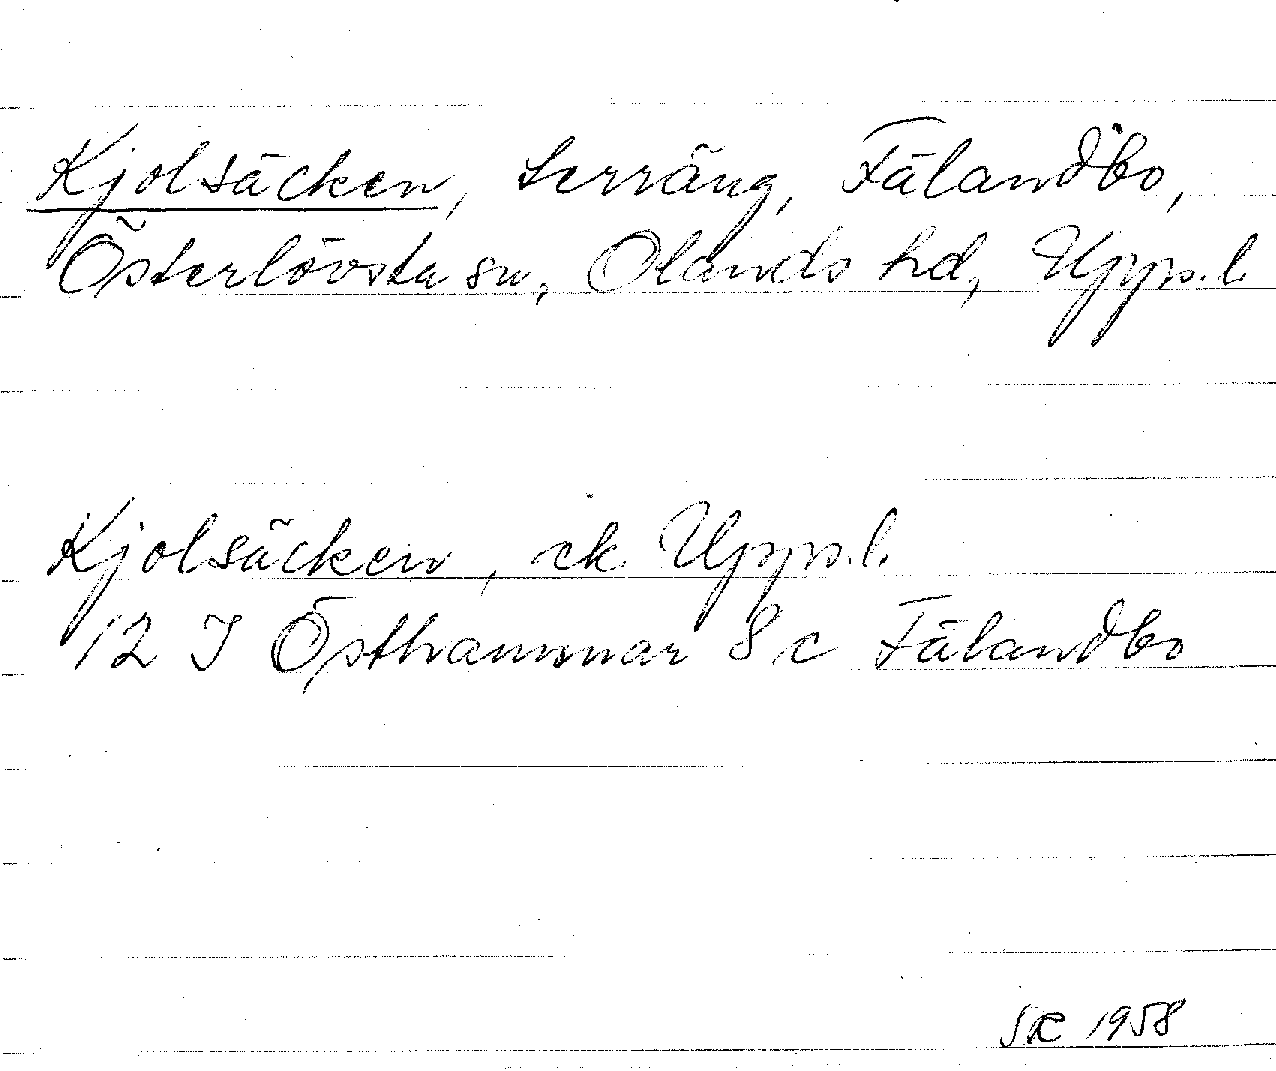 Kjolsäcken, terräng, Fälandbo,
Österlövsta sn, Olands hd, Upps.l.
Kjolsäcken, ek Upps.l.
12 I Östhammar 8 c Fälandbo
SR 1958